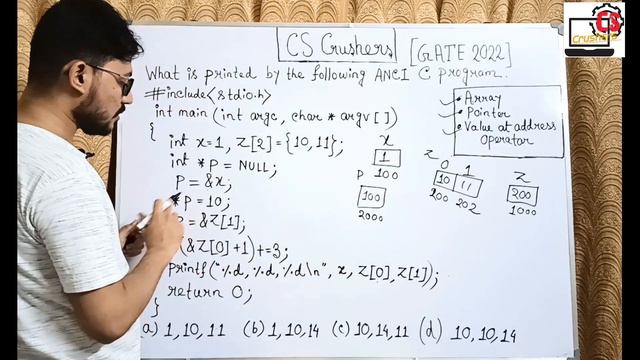 CS Crushers [GATE 2022]
What is printed by the following ANCI C program.
#include<stdio.h>
int main (int argc, char * argv [ ])
{
int x=1, Z[2]={10,11};
int *P = NULL;
P = &x;
*P = 10;
= &Z[1];
(&Z[0]+1)+=3;
printf("%d, %d, %d\n", x, Z[0], Z[1]);
return 0;
}
(a) 1, 10, 11 (b) 1, 10, 14 (c) 10, 14, 11 (d) 10, 10, 14
• Array
• Pointer
• Value at address
Operator
x
1
P 100
100
2000
Z 0 1
10 11
200 202
Z
200
1000
CS
Crushers